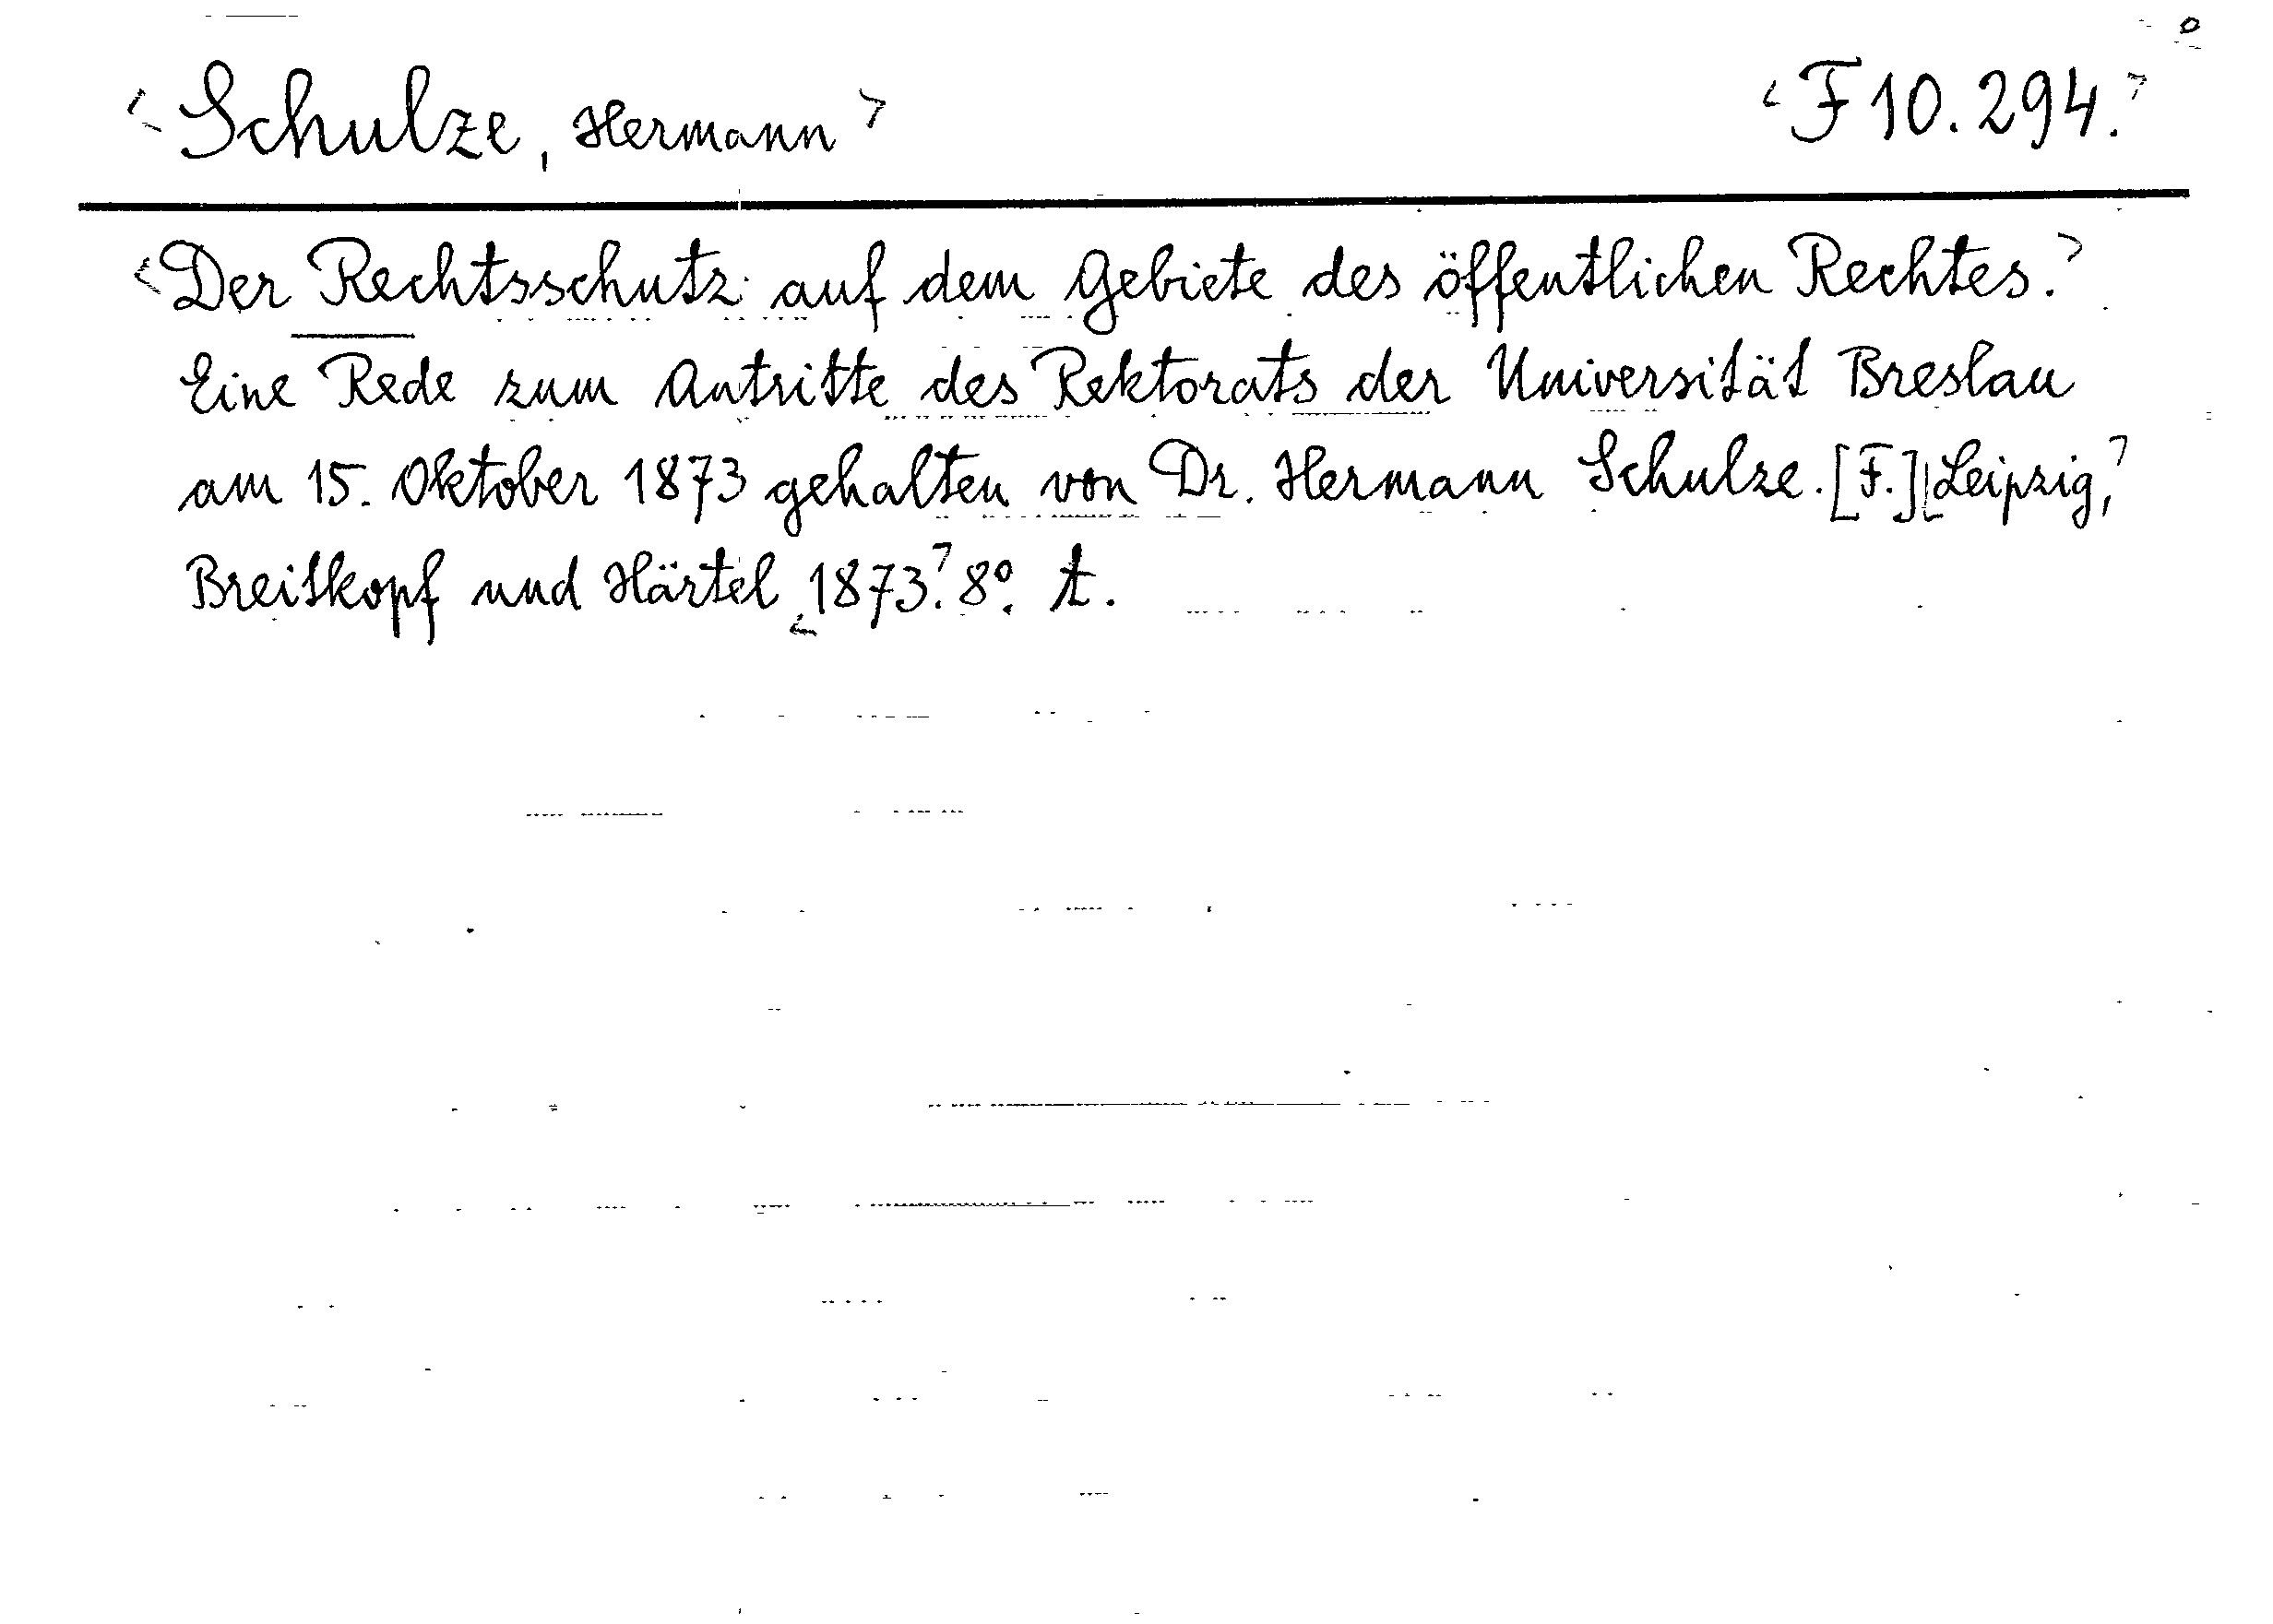 Schulze, Hermann F 10.294.
Der Rechtsschutz auf dem Gebiete des öffentlichen Rechtes.
Eine Rede zum Antritte des Rektorats der Universität Breslau
am 15. Oktober 1873 gehalten von Dr. Hermann Schulze. [F.] Leipzig,
Breitkopf und Härtel 1873. 8º. t.